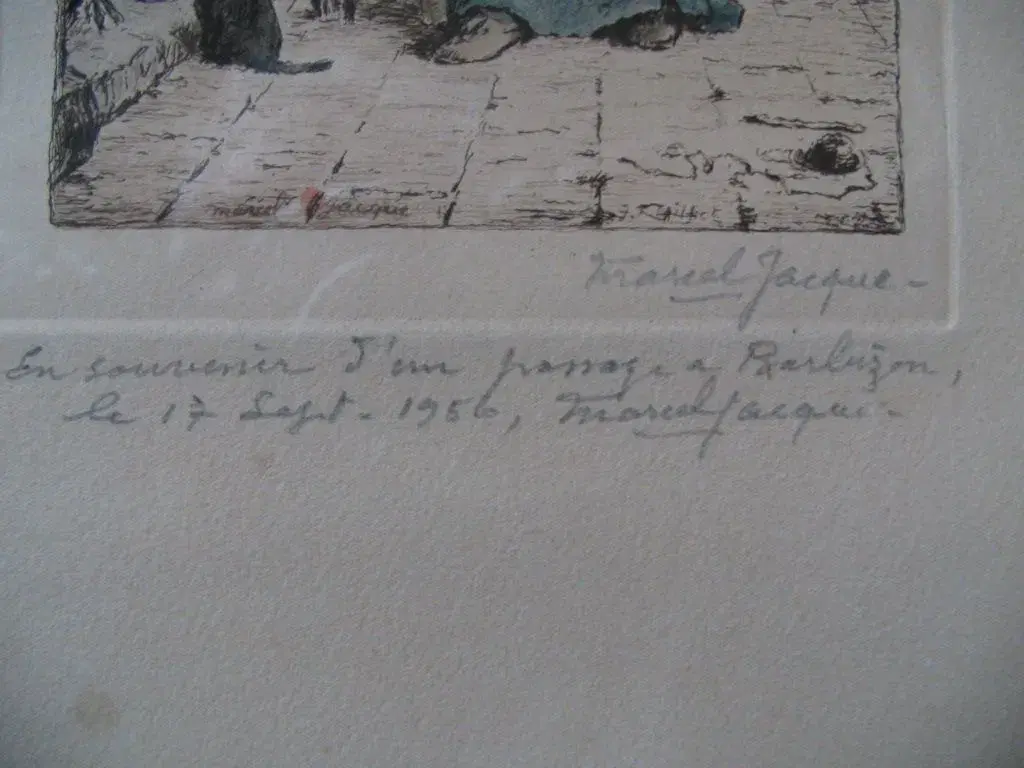 Marcel Jacque
Marcel Jacque -
En souvenir d'un passage a Barbizon,
le 17 Sept - 1956, Marcel Jacque -